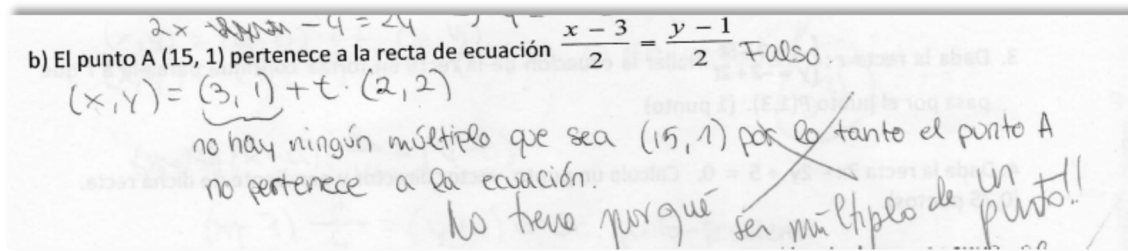 2x - 4 = 2y
b) El punto A (15, 1) pertenece a la recta de ecuación (x − 3)/2 = (y − 1)/2 Falso
(x, y) = (3, 1) + t · (2, 2)
no hay ningún múltiplo que sea (15, 1) por lo tanto el punto A
no pertenece a la ecuación.
No tiene porqué ser múltiplo de un punto!!